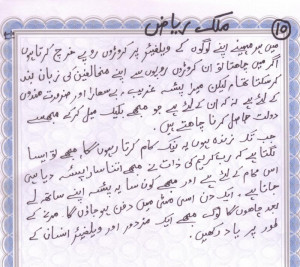 ملک ریاض
(۱۵)
میں ہر مہینے اپنے لوگوں کے ویلفیئر پر کروڑوں روپے خرچ کرتا ہوں
اگر میں چاہتا تو ان کروڑوں روپوں سے اپنے مخالفین کی زبان بند
کر سکتا تھا لیکن میرا پیسہ غریب بے سہارا اور ضرورت مندوں
کے لئے ہے نہ کہ ان کے لئے ہے جو مجھے بلیک میل کر کے مجھ سے
دولت حاصل کرنا چاہتے ہیں۔
جب تک زندہ ہوں یہ نیک کام کرتا رہوں گا، مجھے تو ایسا
لگتا ہے کہ رب کریم کی ذات نے مجھے اتنا سارا پیسہ دیا ہی
اس کام کے لئے ہے اور مجھے کون سا یہ پیسہ اپنے ساتھ لے
جانا ہے، ایک دن اسی مٹی میں دفن ہو جاؤں گا۔ مرنے کے
بعد چاہوں گا لوگ مجھے ایک مزدور اور ویلفیئر انسان کے
طور پر یاد رکھیں۔